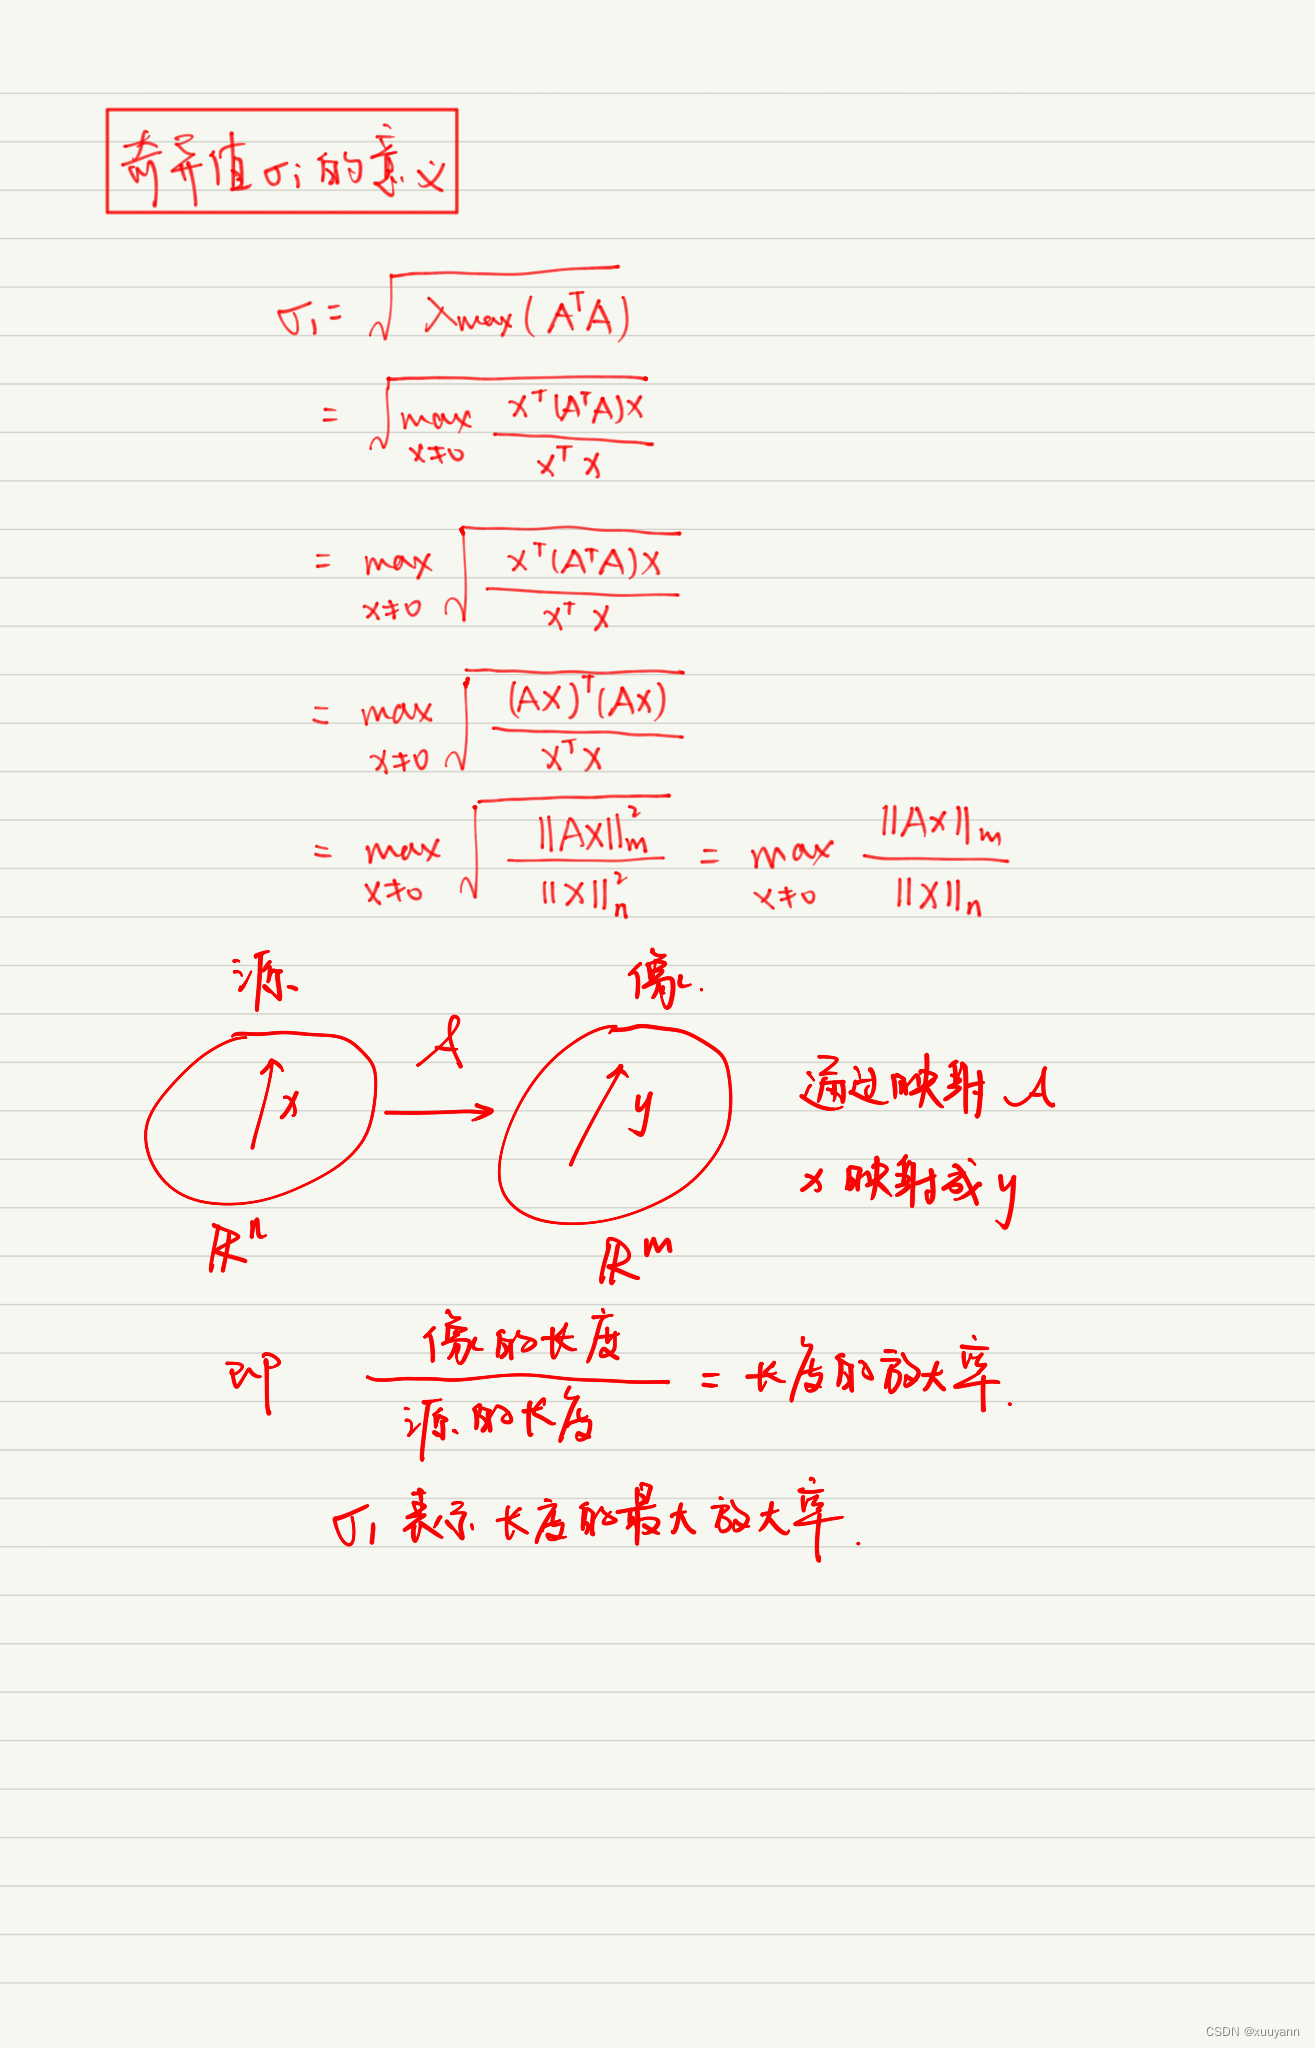 奇异值σᵢ的意义
σ₁ = √(λmax(AᵀA))
= √(max x≠0 xᵀ(AᵀA)x / xᵀx)
= max x≠0 √(xᵀ(AᵀA)x / xᵀx)
= max x≠0 √((Ax)ᵀ(Ax) / xᵀx)
= max x≠0 √(||Ax||²m / ||x||²n) = max x≠0 ||Ax||m / ||x||n
源 像.
x A y 通过映射 A
x 映射成 y
ℝⁿ ℝᵐ
即 像的长度 / 源的长度 = 长度的放大率.
σ₁ 表示 长度的最大放大率.
CSDN @xuuyann